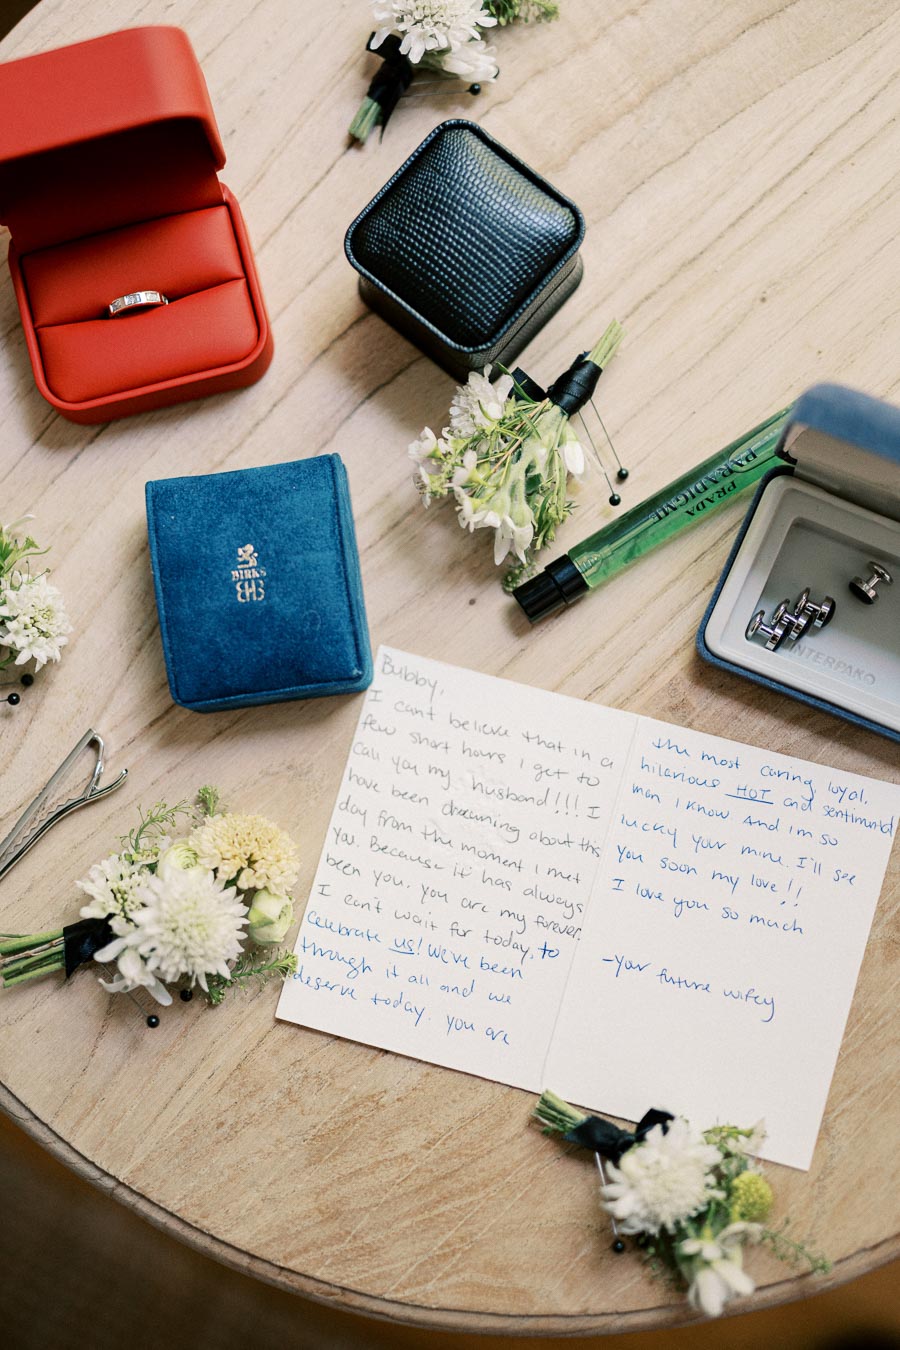 BIRKS
PRADA
PARADIGME
INTERPAKO
Bubby,
I can't believe that in a
few short hours I get to
call you my husband!!! I
have been dreaming about this
day from the moment I met
you. Because it has always
been you. you are my forever.
I can't wait for today, to
celebrate us! We've been
through it all and we
deserve today. you are
the most caring, loyal,
hilarious HOT and sentimental
man I know and im so
lucky your mine. I'll see
you soon my love!!
I love you so much
-Your future wifey